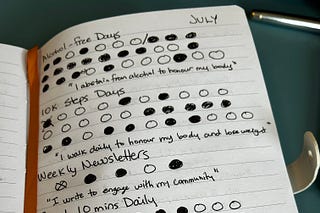 JULY
Alcohol-free Days
"I abstain from alcohol to honour my body"
10K Steps Days
"I walk daily to honour my body and lose weight"
Weekly Newsletters
"I write to engage with my community"
10 mins Daily